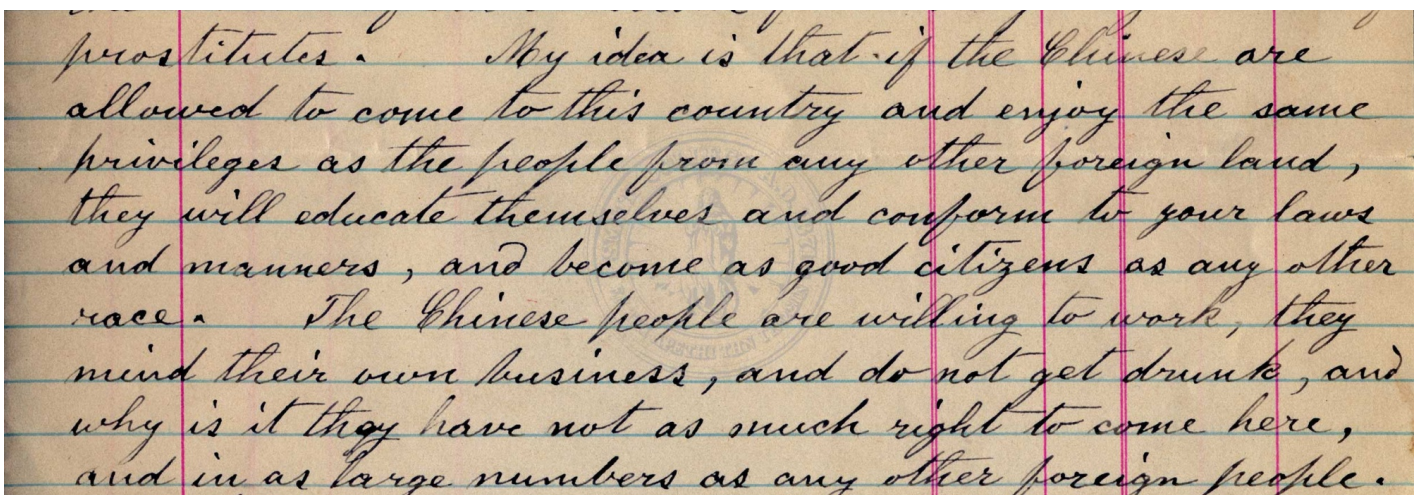 prostitutes. My idea is that if the Chinese are
allowed to come to this country and enjoy the same
privileges as the people from any other foreign land,
they will educate themselves and conform to your laws
and manners, and become as good citizens as any other
race. The Chinese people are willing to work, they
mind their own business, and do not get drunk, and
why is it they have not as much right to come here,
and in as large numbers as any other foreign people.